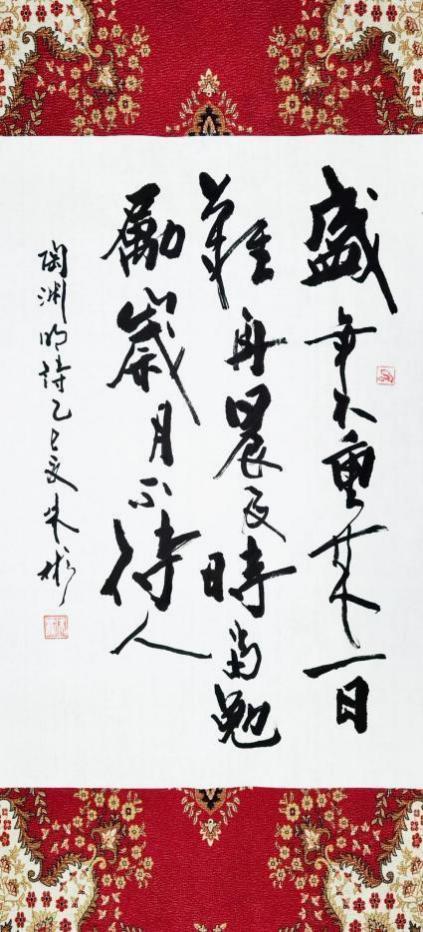 盛年不重來一日
難再晨及時當勉
勵歲月不待人
陶渊明詩乙巳夏朱彬